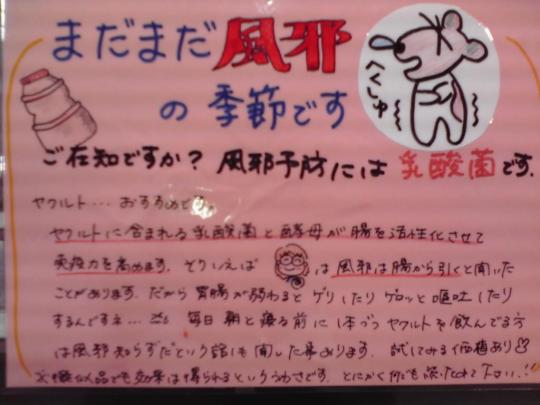 まだまだ風邪
の季節です
へくしゅ
ご在知ですか？風邪予防には乳酸菌です.
ヤクルト...おすすめです。
ヤクルトに含まれる乳酸菌と酵母が腸を活性化させて
免疫力を高めます. そういえば は風邪は腸から引くと聞いた
ことがあります. だから胃腸が弱わるとゲリしたりゲロッと嘔吐したり
するんですネ... 毎日朝と寝る前に1本づつヤクルトを飲んでる方
は風邪知らずだという話も聞した事あります. 試してみる価値あり♡
品でも効果は得られるといううわさです. とにかく何でも 下さい.!!